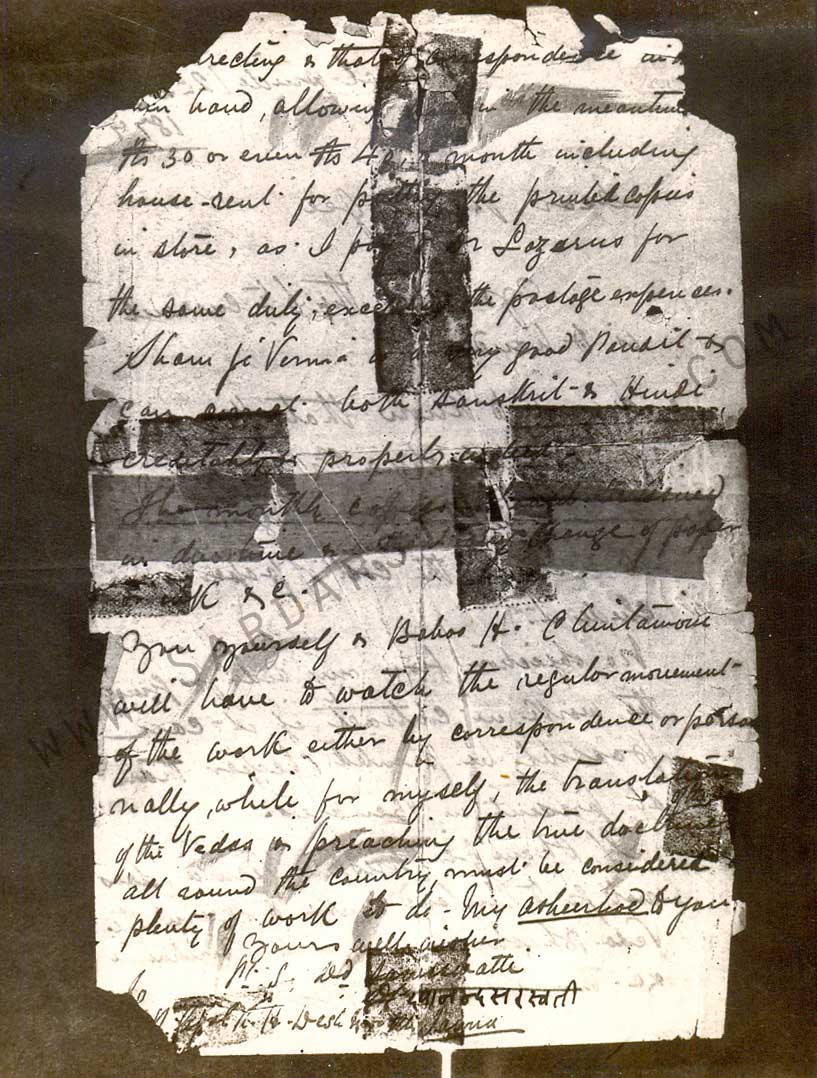 recting & that of correspondence in
hand, allowing in the meantime
Rs 30 or even Rs 40, a month including
house-rent for putting the printed copies
in store, as I pay to Dr Lazarus for
the same duty, excepting the postage expences.
Sham ji Verma is a very good Pandit &
can correct both Sanskrit & Hindi
creditably & properly
The monthly copies issued
in due time & change of paper
&c.
You yourself & Baboo H. Chintamoni
will have to watch the regular movement
of the work either by correspondence or perso
nally, while for myself, the translation
of the Vedas & preaching the true doctrine
all round the country must be considered
plenty of work to do - My asheerbad to you
Yours well wisher
Pt. S. Dd Sarusswatte
दयानन्द सरस्वती
H. Desh
WWW. SARDAR .COM